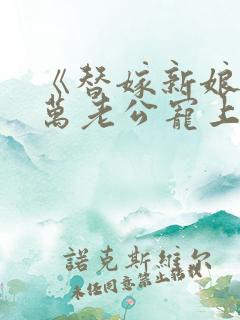 《替嫁新娘
萬老公寵上
諾克斯維尔
未任同意禁止轉載